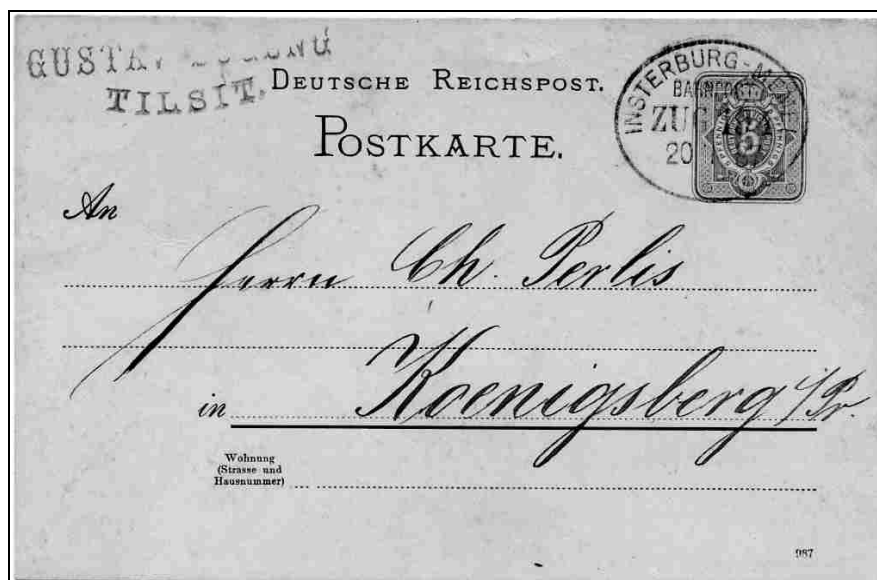 TILSIT.
DEUTSCHE REICHSPOST.
POSTKARTE.
INSTERBURG-
BAHNPOST
ZUG
20
5
An
Herrn Ch. Perlis
in Koenigsberg i/Pr.
Wohnung
(Strasse und
Hausnummer)
987